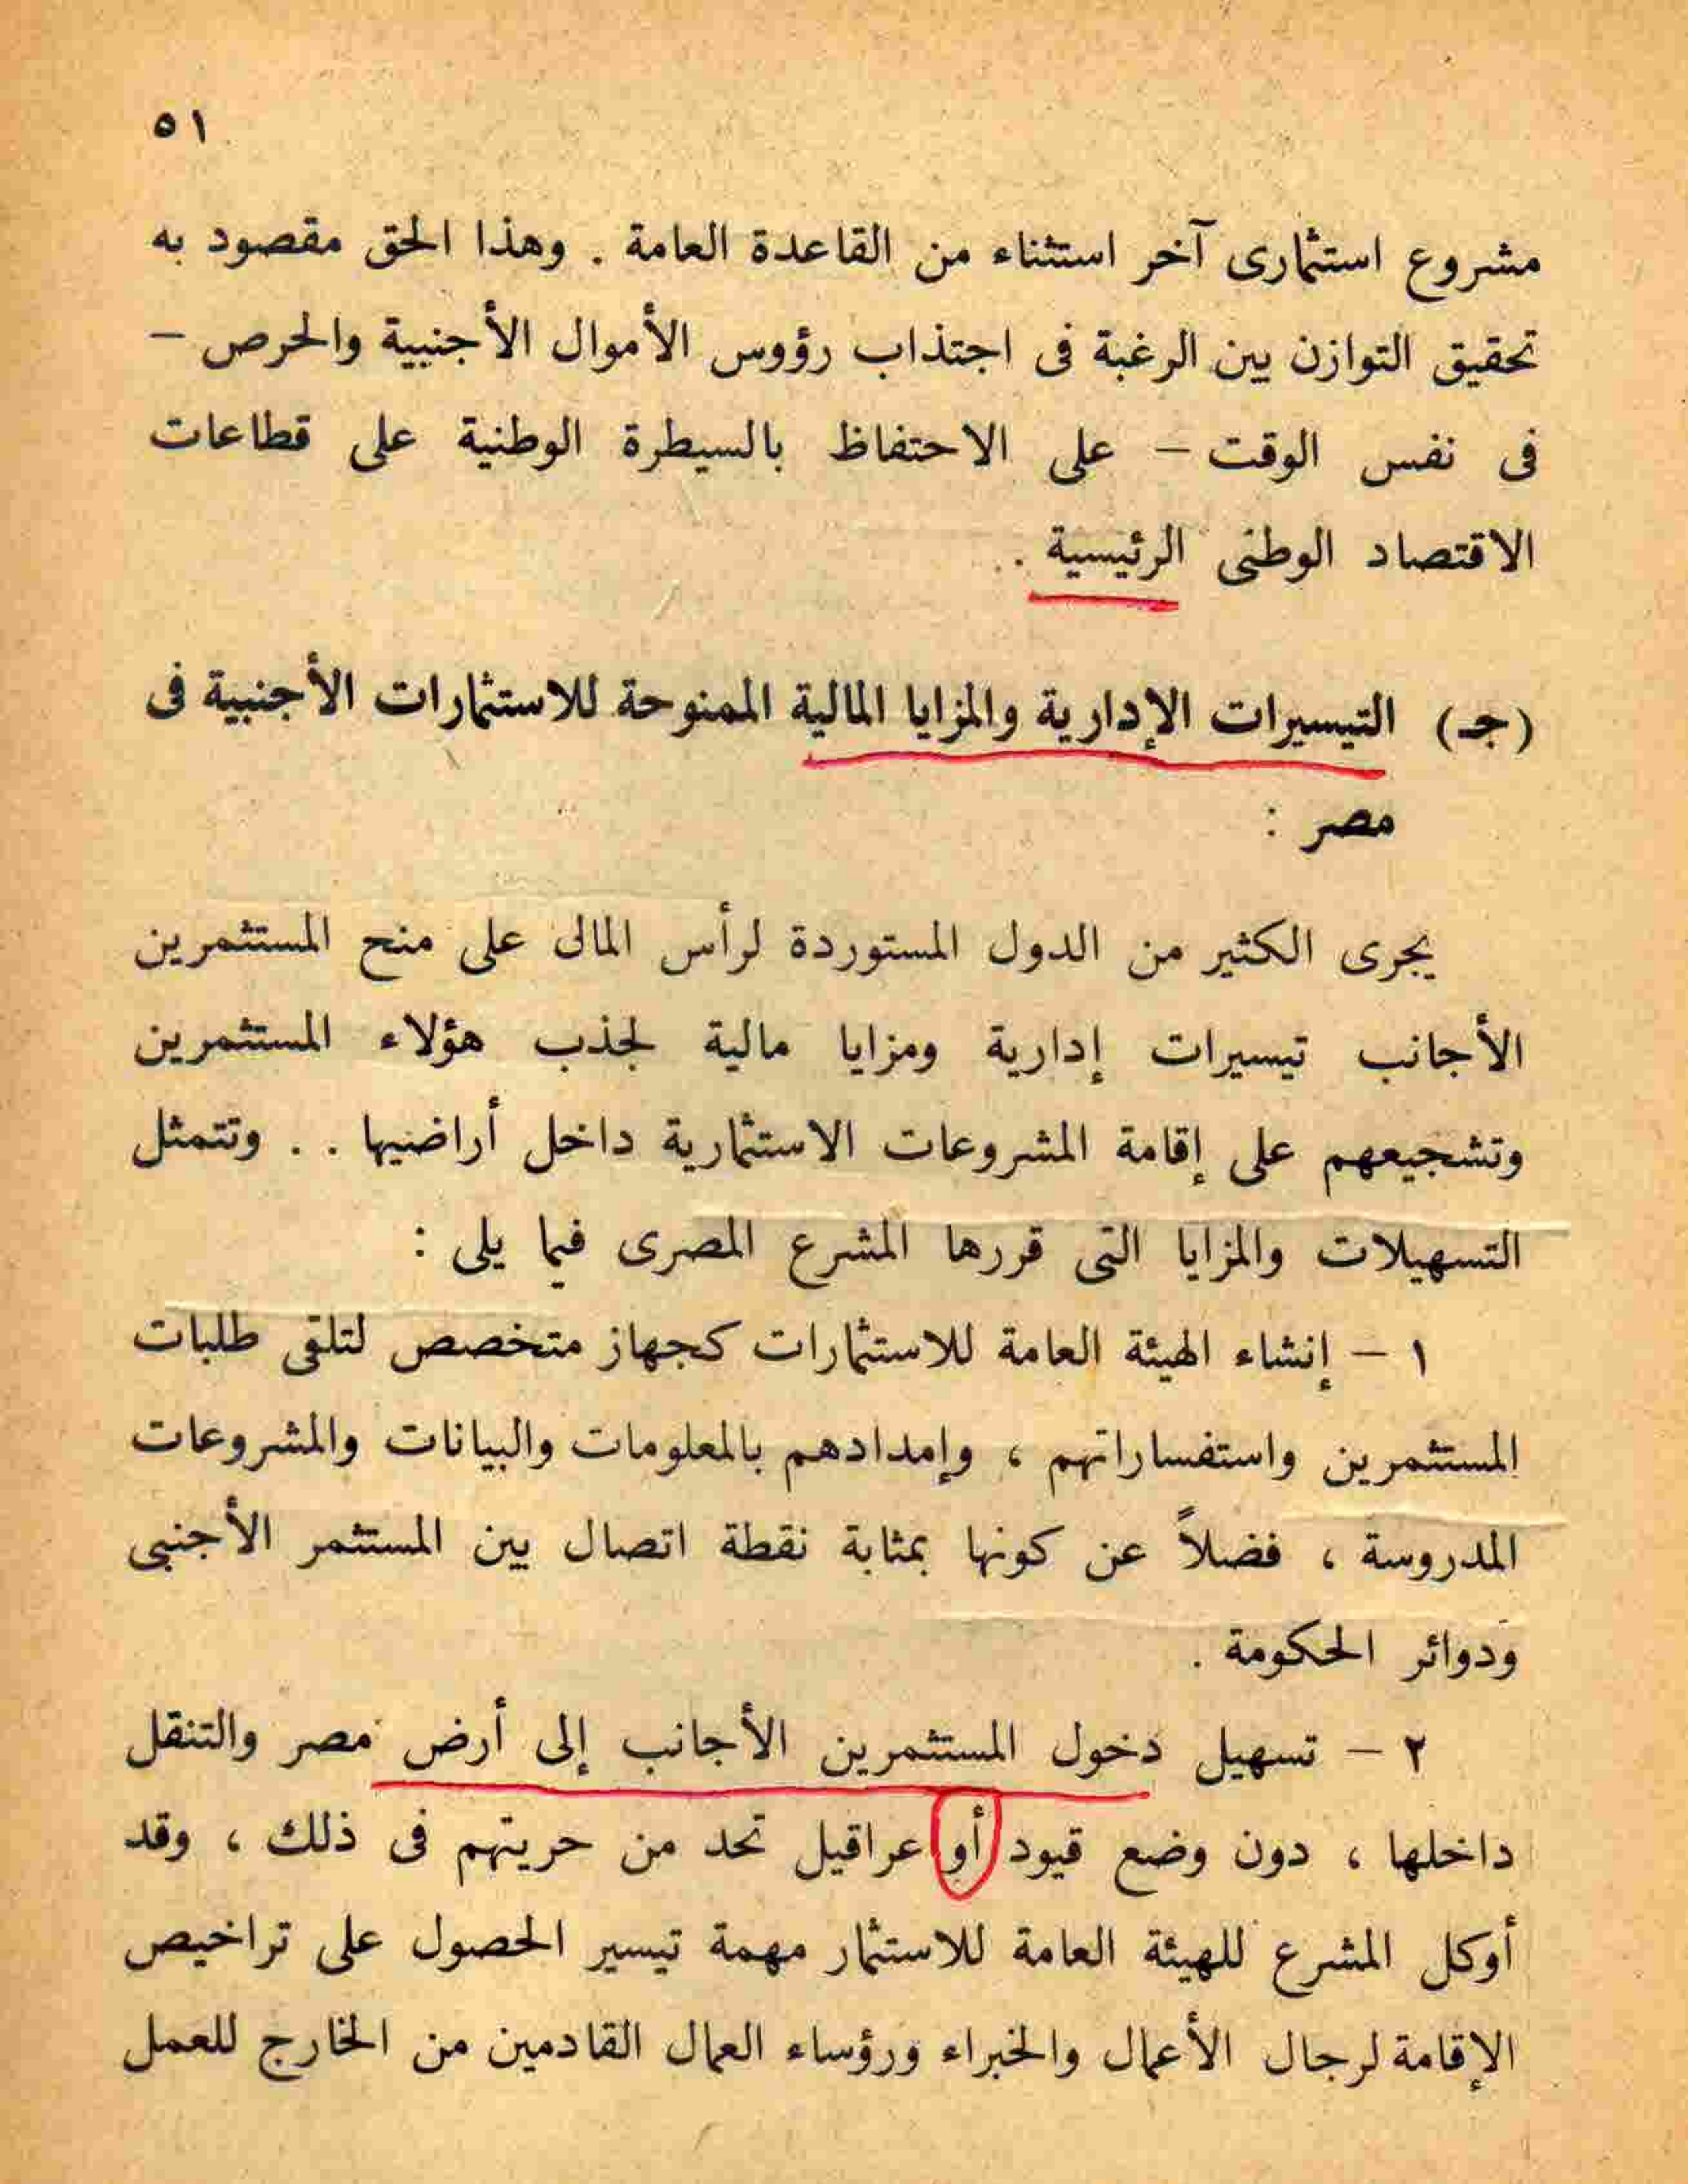 ٥١
مشروع استثمارى آخر استثناء من القاعدة العامة . وهذا الحق مقصود به
تحقيق التوازن بين الرغبة فى اجتذاب رؤوس الأموال الأجنبية والحرص –
فى نفس الوقت – على الاحتفاظ بالسيطرة الوطنية على قطاعات
الاقتصاد الوطنى الرئيسية .
(جـ) التيسيرات الإدارية والمزايا المالية الممنوحة للاستثمارات الأجنبية فى
مصر :
يجرى الكثير من الدول المستوردة لرأس المالى على منح المستثمرين
الأجانب تيسيرات إدارية ومزايا مالية لجذب هؤلاء المستثمرين
وتشجيعهم على إقامة المشروعات الاستثمارية داخل أراضيها . . وتتمثل
التسهيلات والمزايا التى قررها المشرع المصرى فيما يلى :
١ – إنشاء الهيئة العامة للاستثمارات كجهاز متخصص لتلقى طلبات
المستثمرين واستفساراتهم ، وإمدادهم بالمعلومات والبيانات والمشروعات
المدروسة ، فضلاً عن كونها بمثابة نقطة اتصال بين المستثمر الأجنبى
ودوائر الحكومة .
٢ – تسهيل دخول المستثمرين الأجانب إلى أرض مصر والتنقل
داخلها ، دون وضع قيود أو عراقيل تحد من حريتهم فى ذلك ، وقد
أوكل المشرع للهيئة العامة للاستثمار مهمة تيسير الحصول على تراخيص
الإقامة لرجال الأعمال والخبراء ورؤساء العمال القادمين من الخارج للعمل